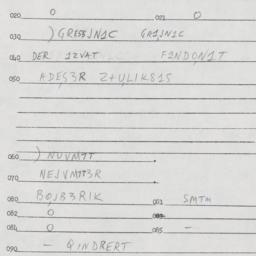 020 0 021 0
030 ) GRESBJN1C GA1JN1C
040 DER 1ZVAT F1NDON1T
050 ADES3R Z+ULIKS1S
060 ) NUVMTT
070 NEJVMTT3R
080 BOJB3R1K 081 SMTM
082 0
084 0 085 -
090 - QINDRERT